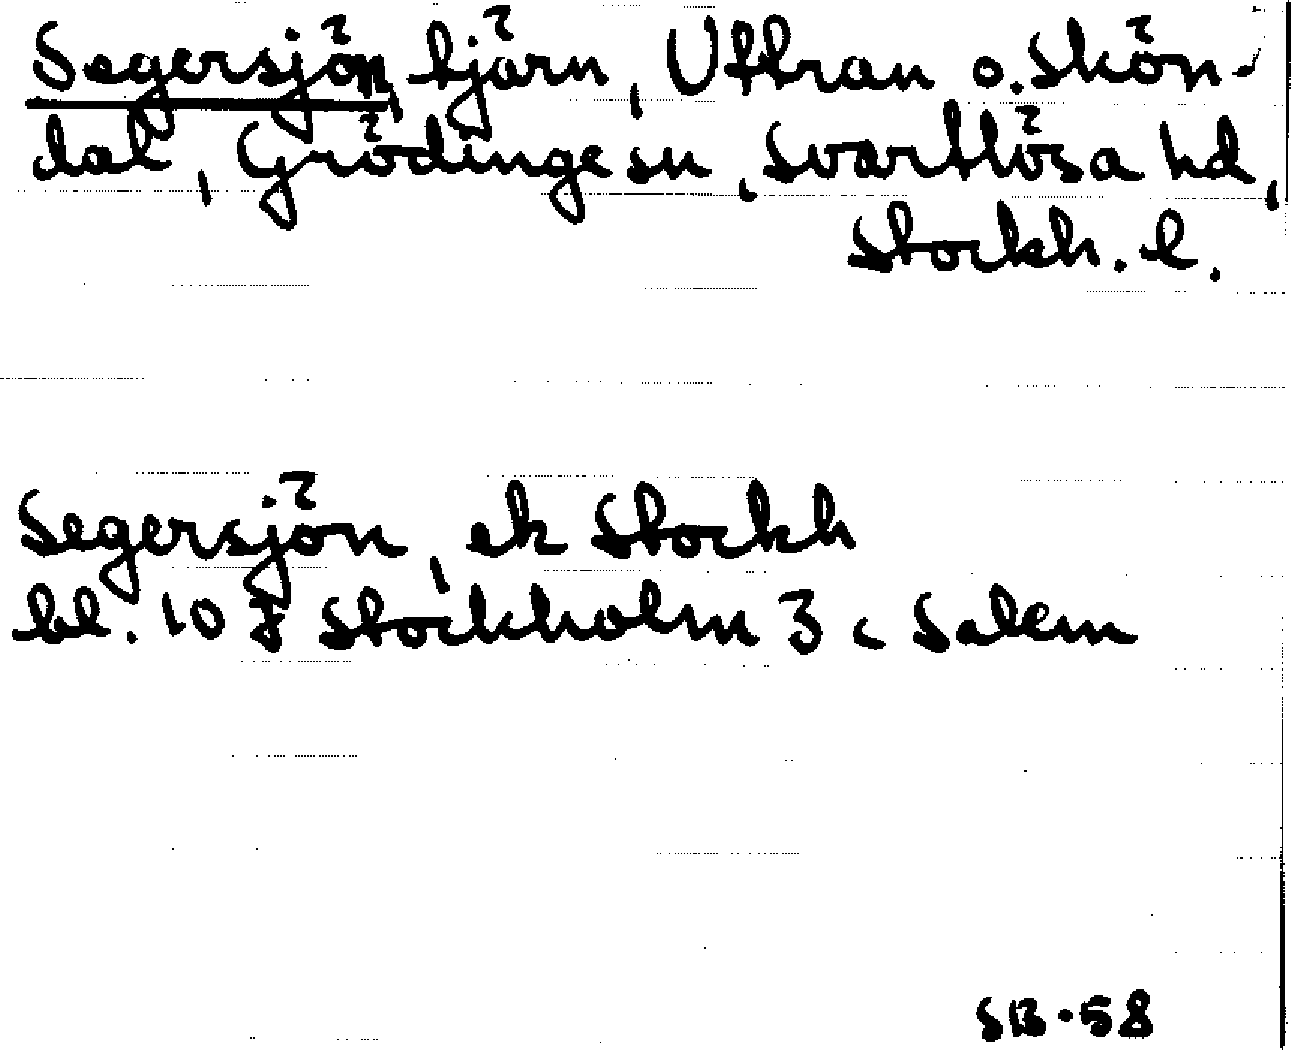 Segersjön, tjärn, Uttran o. Skön-
dal, Grödinge sn, Svartlösa hd,
Stockh. l.
Segersjön, ek Stockh
bl. 10 J Stockholm 3 c Salem
SB-58